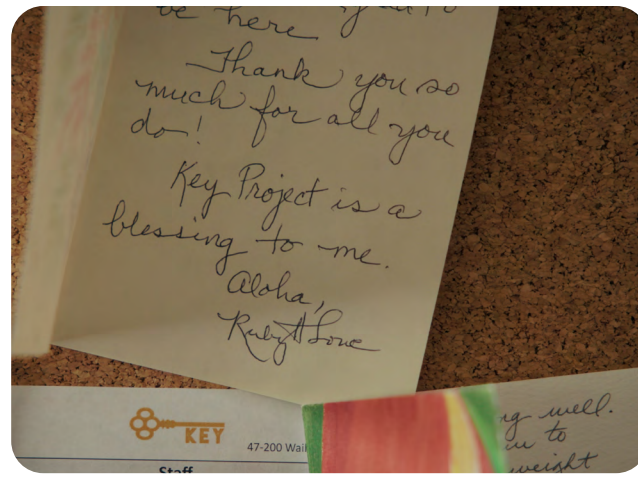 be here
Thank you so
much for all you
do!
Key Project is a
blessing to me.
Aloha,
Ruby
KEY
47-200
Staff
well.
to
weight